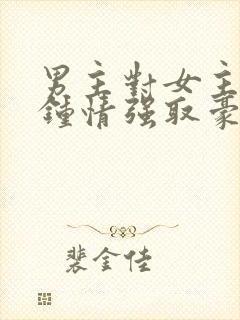 男主對女主
鍾情強取豪
裴金佳